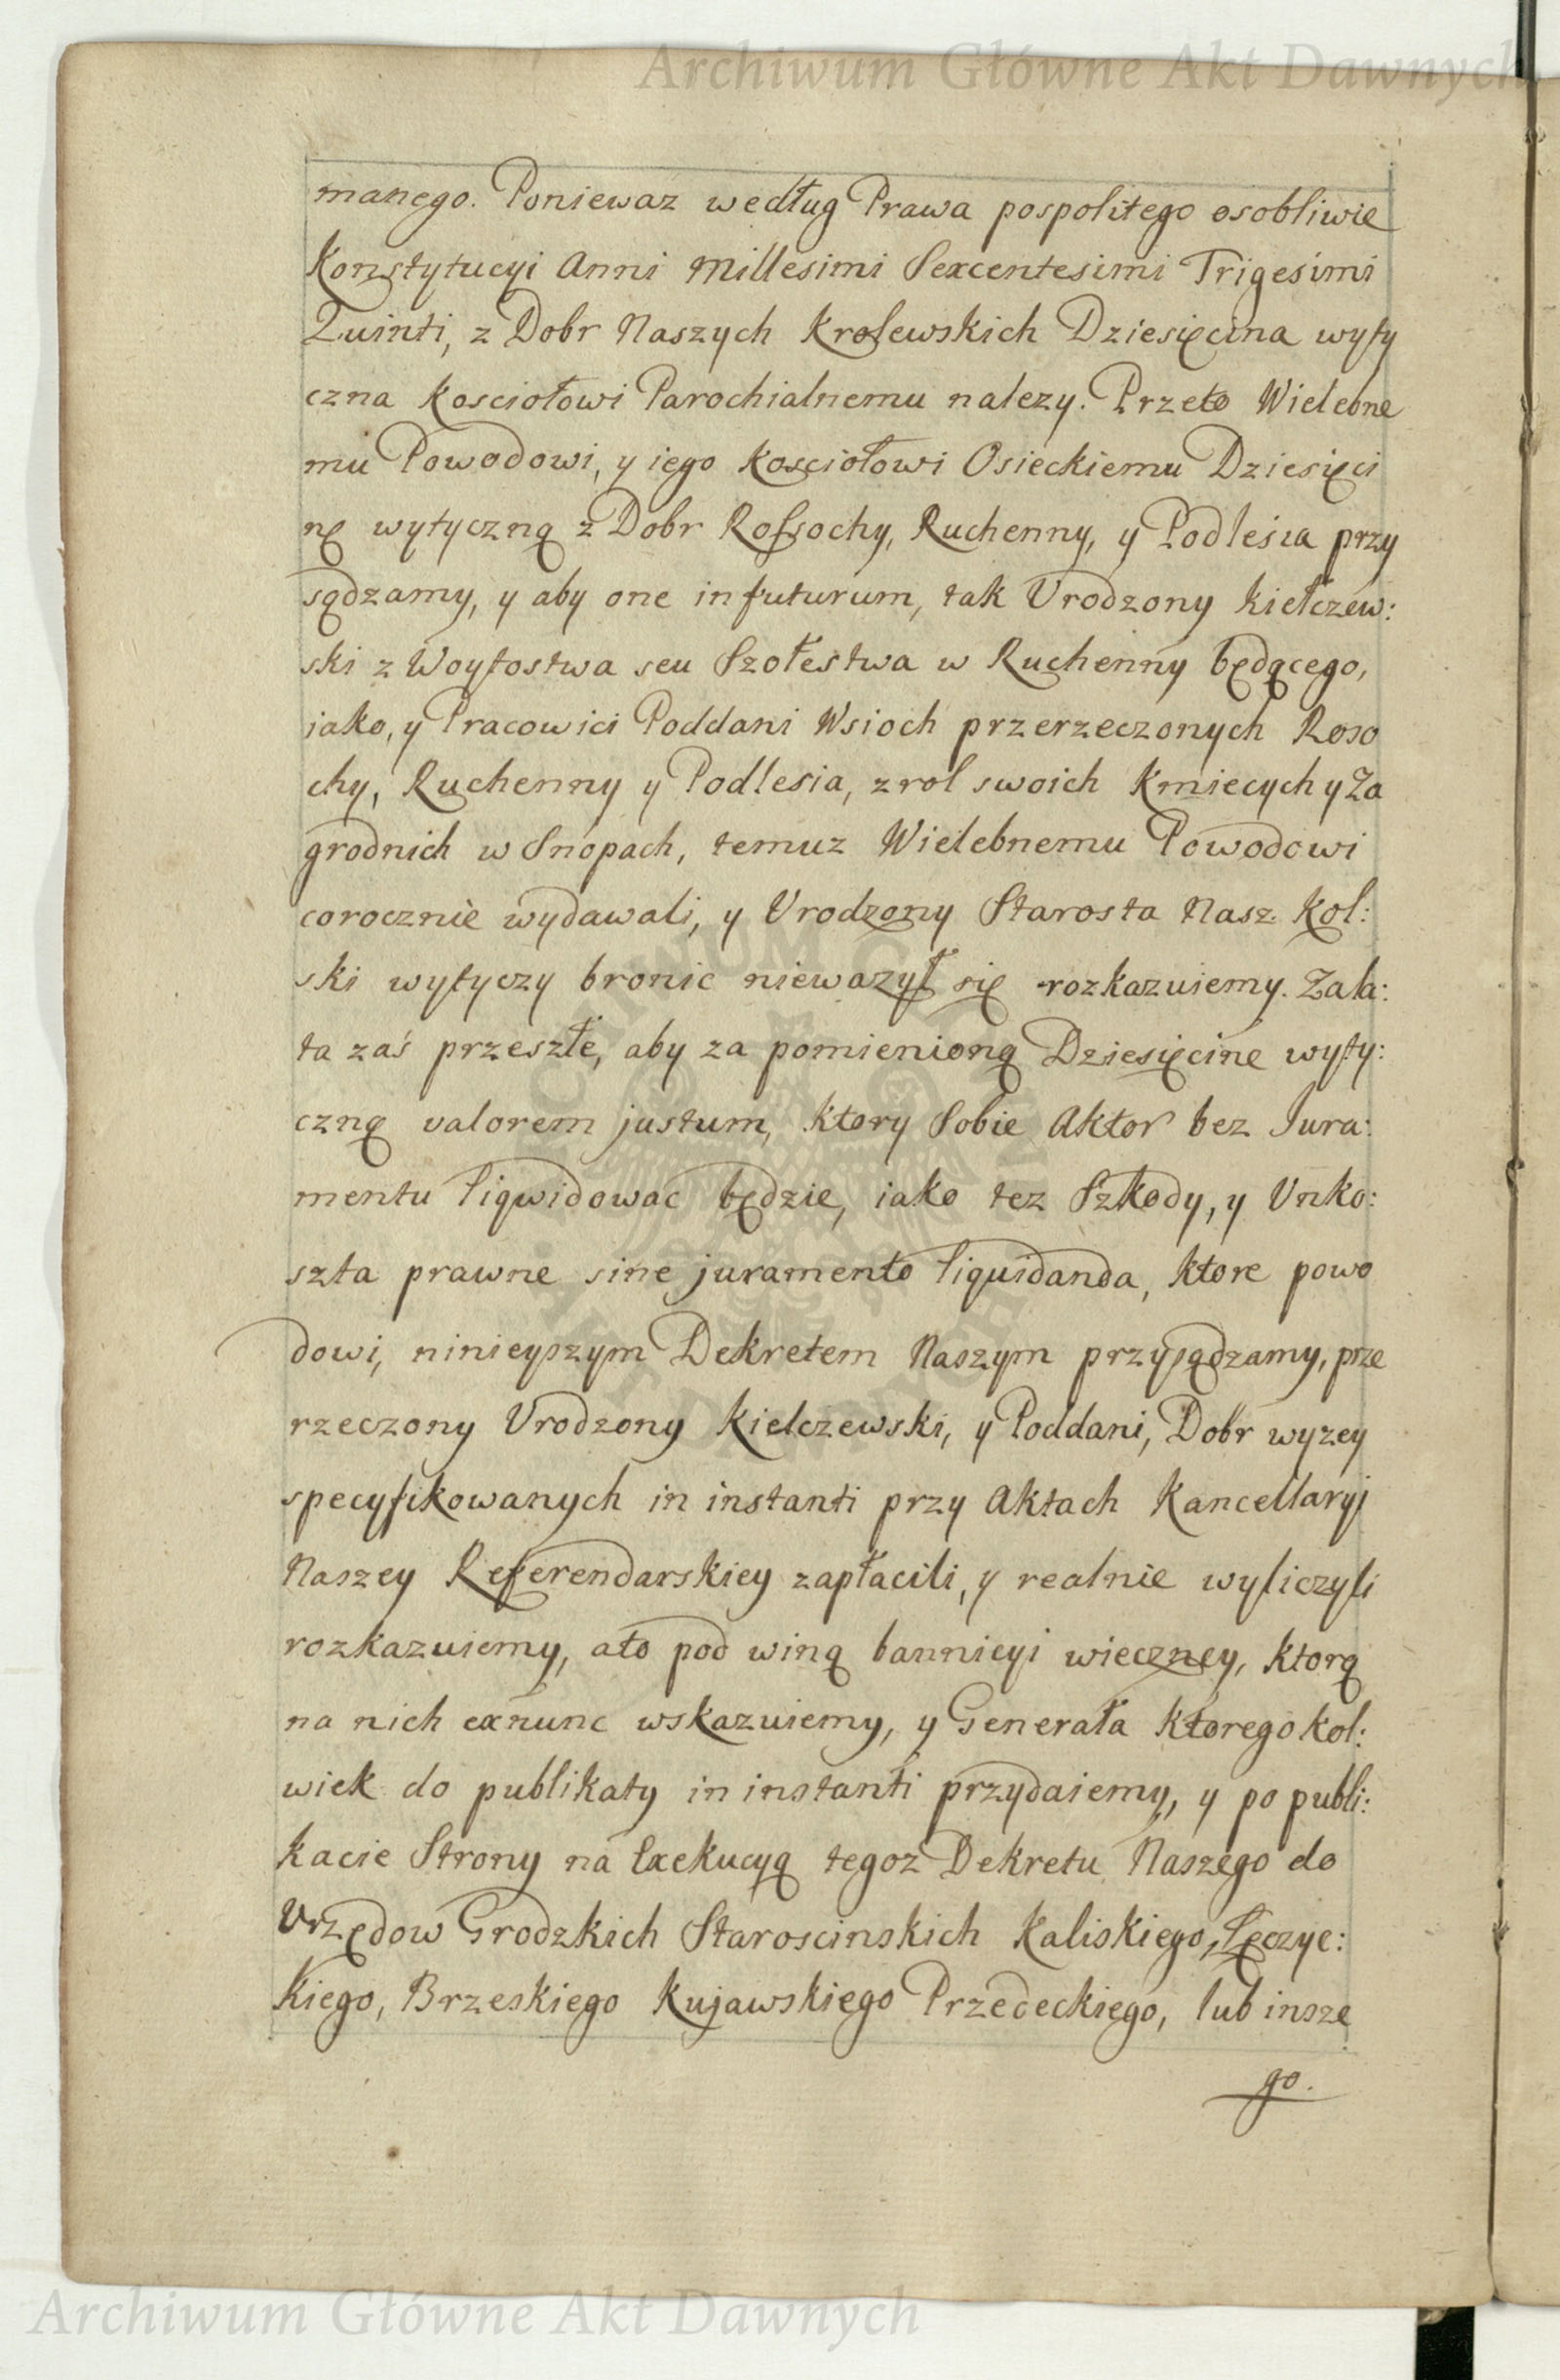 Archiwum Główne Akt Dawnych
manego. Poniewaz według Prawa pospolitego osobliwie
Konstytucyi Anni Millesimi Sexcentesimi Trigesimi
Quinti, z Dobr Naszych Krolewskich Dziesięcina wyty
czna Kosciołowi Parochialnemu nalezy. Przeto Wielebne
mu Powodowi, y iego Kosciołowi Osieckiemu Dziesięci
nę wytyczną z Dobr Rossochy, Ruchenny, y Podlesia przy
sądzamy, y aby one in futurum, tak Urodzony Kiełczew:
ski z Woytostwa seu Szołestwa w Ruchenny będącego,
iako, y Pracowici Poddani Wsioch przerzeczonych Roso
chy, Ruchenny y Podlesia, z rol swoich Kmiecych y Za
grodnich w Snopach, temuz Wielebnemu Powodowi
corocznie wydawali, y Urodzony Starosta Nasz Kol:
ski wytyczy bronic niewazył się rozkazuiemy. Zala:
ta zaś przeszłe, aby za pomienioną Dziesięcine wyty:
czną valorem justum, ktory Sobie Aktor bez Jura:
mentu liqwidowac będzie, iako tez Szkody, y Unko:
szta prawne sine juramento liquidanda, ktore powo
dowi, ninieyszym Dekretem Naszym przysądzamy, prze
rzeczony Urodzony Kielczewski, y Poddani, Dobr wyzey
specyfikowanych in instanti przy Aktach Kancellaryi
Naszey Referendarskiey zapłacili, y realnie wyliczyli
rozkazuiemy, ato pod winą bannicyi wieczney, ktorą
na nich exnunc wskazuiemy, y Generała ktoregokol:
wiek do publikaty in instanti przydaiemy, y po publi:
kacie Strony na Exekucyą tegoz Dekretu Naszego do
Urzędow Grodzkich Staroscinskich Kaliskiego, Łęczyc:
kiego, Brzeskiego Kujawskiego Przedeckiego, lub insze
go.
Archiwum Główne Akt Dawnych